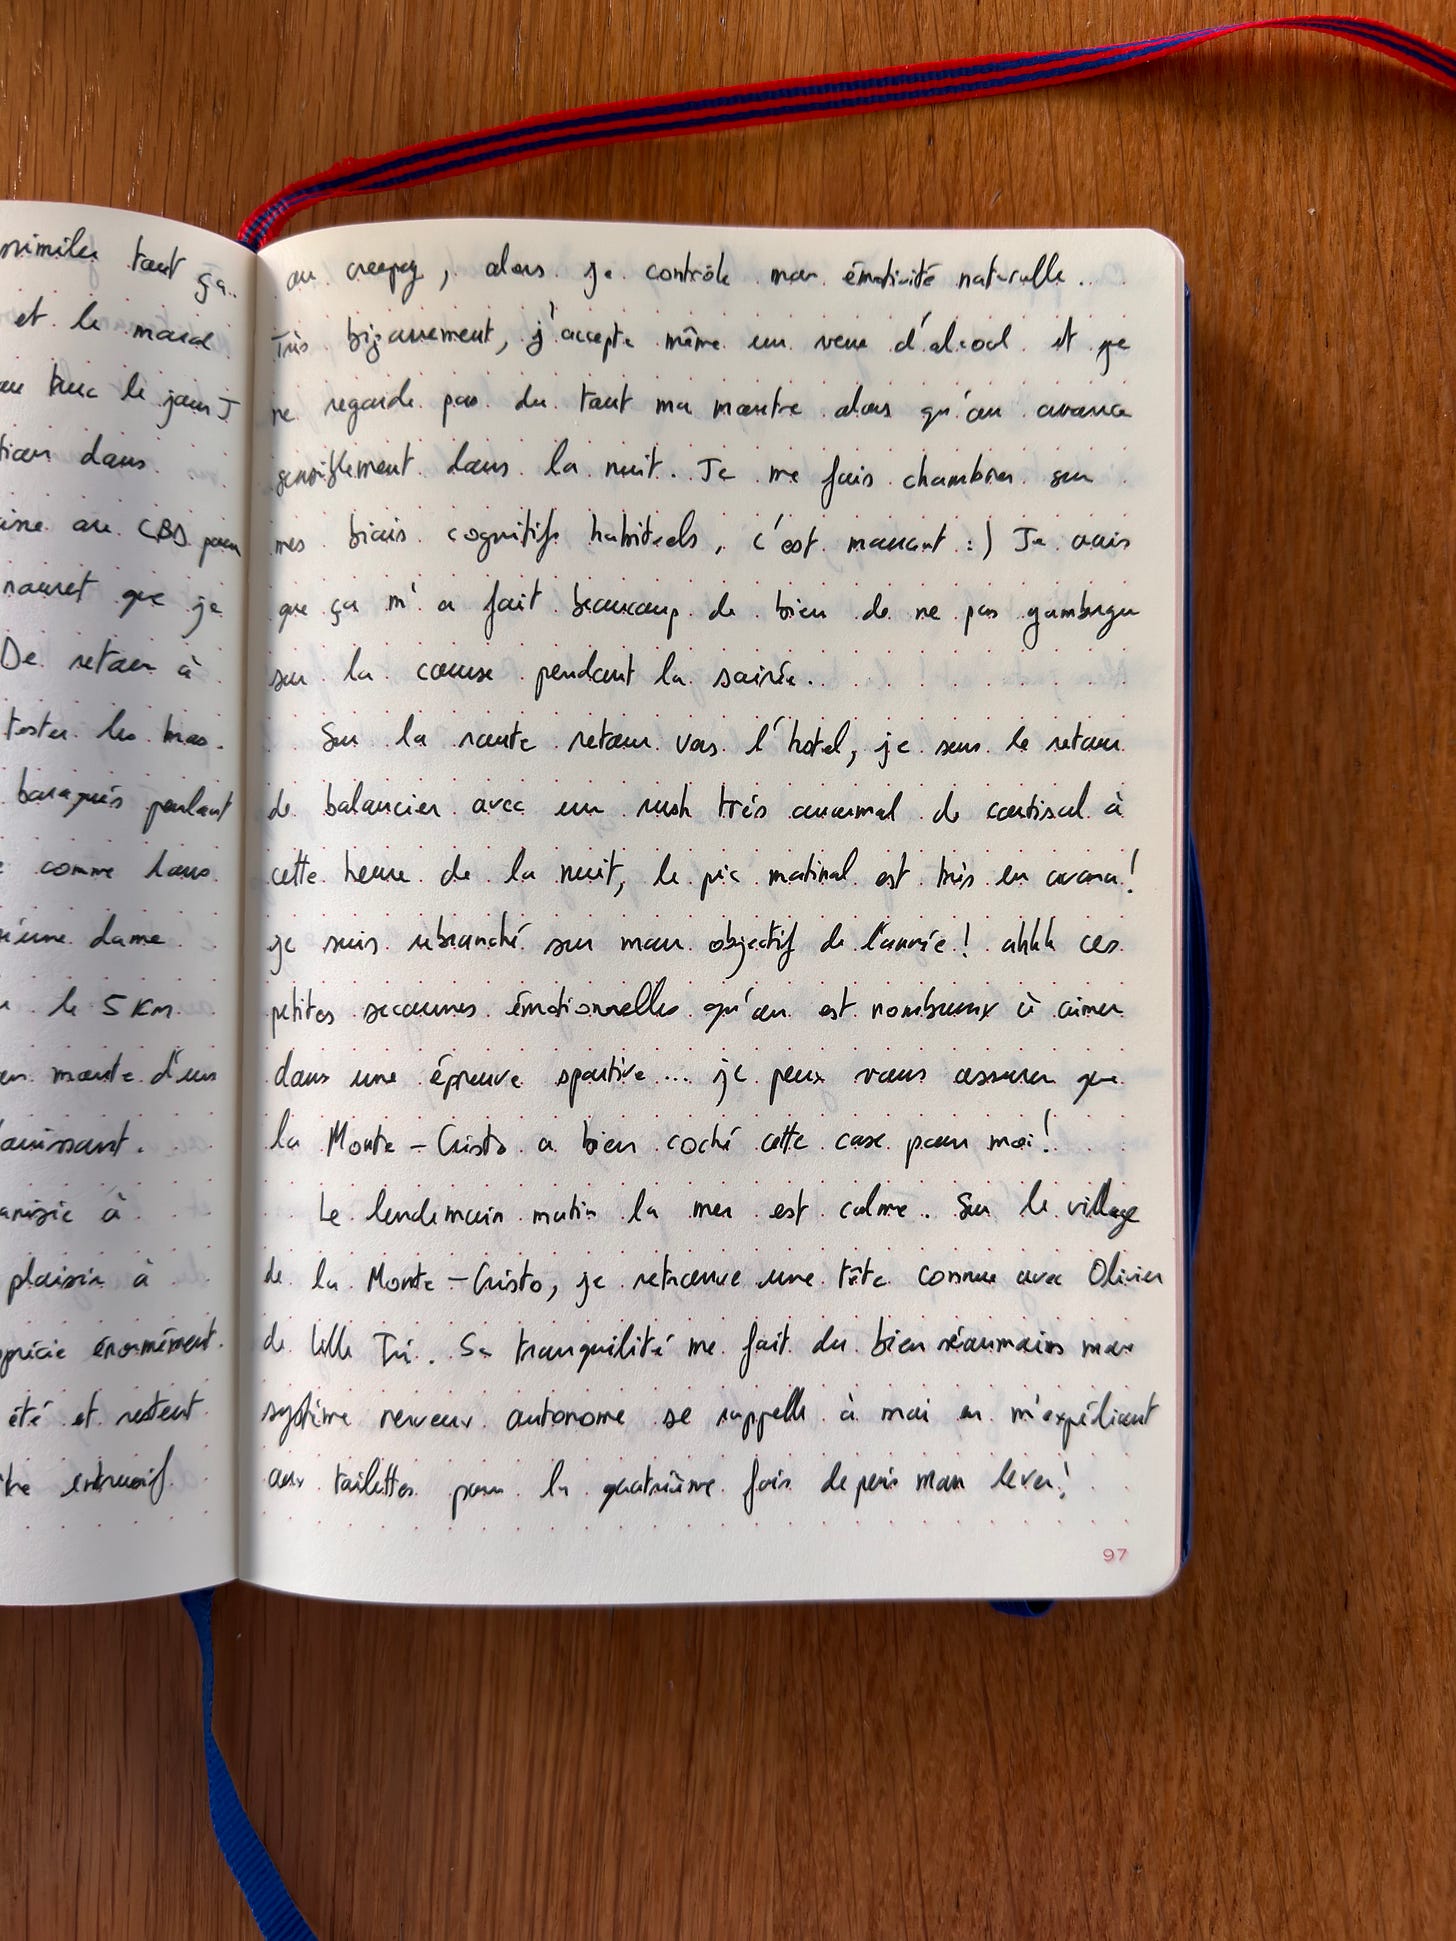 tout ça.
et le mard
truc le jour J
dans
au CBD pour
que je
De retour à
tester les bras.
baraqués pendant
comme dans
une dame
le 5 Km
monte d'un
à
plaisir à
énormément.
été et restent
ou creepy, alors je contrôle mon émotivité naturelle.
Très bizarrement, j'accepte même un verre d'alcool et je
ne regarde pas du tout ma montre alors qu'on avance
sensiblement dans la nuit. Je me fais chambrer sur
mes biais cognitifs habituels, c'est marrant :) Je crois
que ça m'a fait beaucoup de bien de ne pas gamberger
sur la course pendant la soirée.
Sur la route retour vers l'hotel, je sens le retour
de balancier avec un rush très anormal de cortisol à
cette heure de la nuit, le pic matinal est très en avance!
je suis rebranché sur mon objectif de l'année! ahhh ces
petites secousses émotionnelles qu'on est nombreux à aimer
dans une épreuve sportive... je peux vous assurer que
la Monte-Cristo a bien coché cette case pour moi!
Le lendemain matin la mer est calme. Sur le village
de la Monte-Cristo, je retrouve une tête connue avec Olivier
de Lille Tri. Sa tranquilité me fait du bien néanmoins mon
système nerveux autonome se rappelle à moi en m'expédiant
aux toilettes pour la quatrième fois depuis mon lever!
97